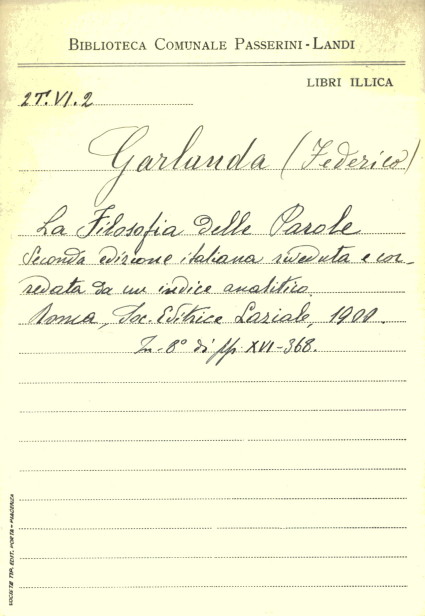 BIBLIOTECA COMUNALE PASSERINI-LANDI
LIBRI ILLICA
2T.VI.2
Garlanda (Federico)
La Filosofia delle Parole
Seconda edizione italiana riveduta e cor-
redata da un indice analitico.
Roma, Soc. Editrice Laziale, 1900.
In-8° di pp. XVI-368.
SOCIETÀ TIP. EDIT. PORTA - PIACENZA